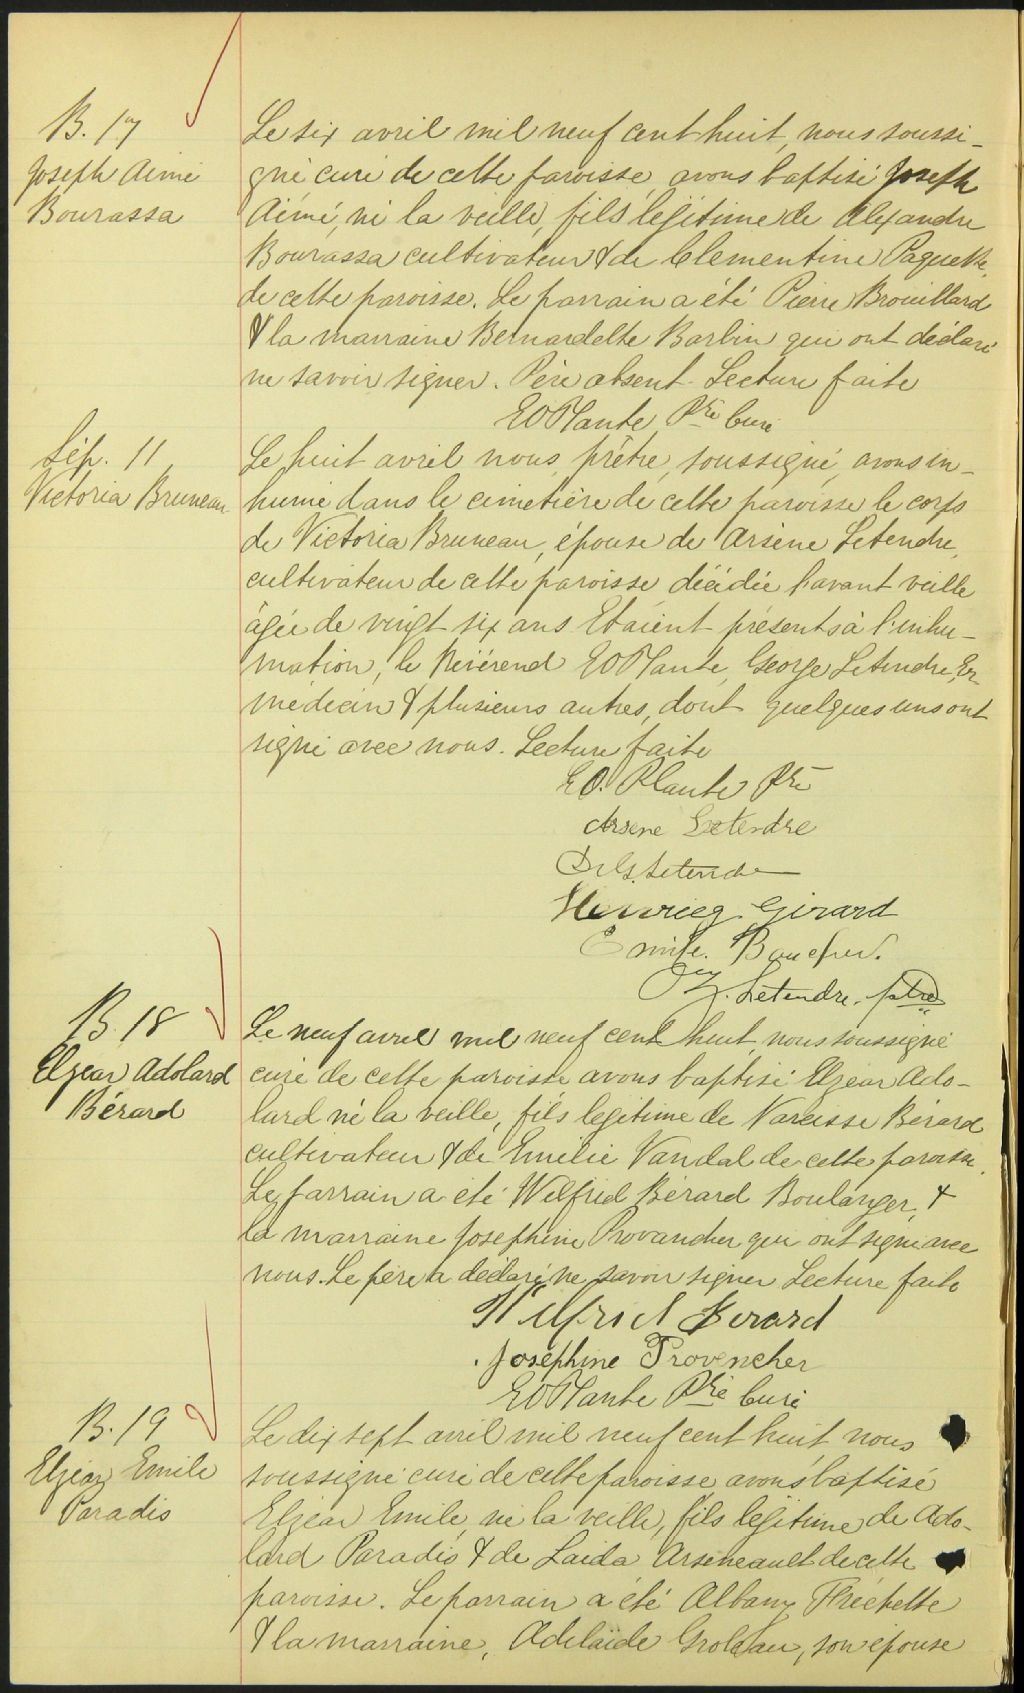 B. 17
Joseph Aimé
Bourassa
Le six avril mil neuf cent huit, nous soussi-
gné curé de cette paroisse, avons baptisé Joseph
Aimé, né la veille, fils légitime de Alexandre
Bourassa cultivateur & de Clementine Paquette,
de cette paroisse. Le parrain a été Pierre Brouillard
& la marraine Bernardette Barbin qui ont déclaré
ne savoir signer. Père absent. Lecture faite
EO Plante Ptre Curé
Sép. 11
Victoria Bruneau
Le huit avril nous, prêtre, soussigné, avons in-
humé dans le cimetière de cette paroisse le corps
de Victoria Bruneau, épouse de Arsène Letendre,
cultivateur de cette paroisse décédée l'avant veille
âgée de vingt six ans. Etaient présents à l'inhu-
mation, le Révérend EO Plante, George Letendre, Er-
médecin & plusieurs autres, dont quelques uns ont
signé avec nous. Lecture faite
E O. Plante Ptre
Arsene Letendre
Dr G. Letendre
Girard
Emile. Boucher.
Oz. Letendre. ptre
B. 18
Elzear Adolard
Bérard
Le neuf avril mil neuf cent huit, nous soussigné
curé de cette paroisse avons baptisé Elzear Ado-
lard né la veille, fils legitime de Narcisse Bérard
cultivateur & de Emilie Vandal de cette paroisse.
Le parrain a été Wilfrid Bérard Boulanger, &
la marraine Josephine Provancher qui ont signé avec
nous. Le père a déclaré ne savoir signer Lecture faite
Wilfrid Berard
Joséphine Provencher
EO Plante Ptre Curé
B. 19
Elzéar Emile
Paradis
Le dix sept avril mil neuf cent huit nous
soussigné curé de cette paroisse avons baptisé
Elzear Emile, né la veille, fils légitime de Ado-
lard Paradis & de Laida Arseneault de cette
paroisse. Le parrain a été Albany Fréchette
& la marraine, Adelaïde Groleau, son épouse